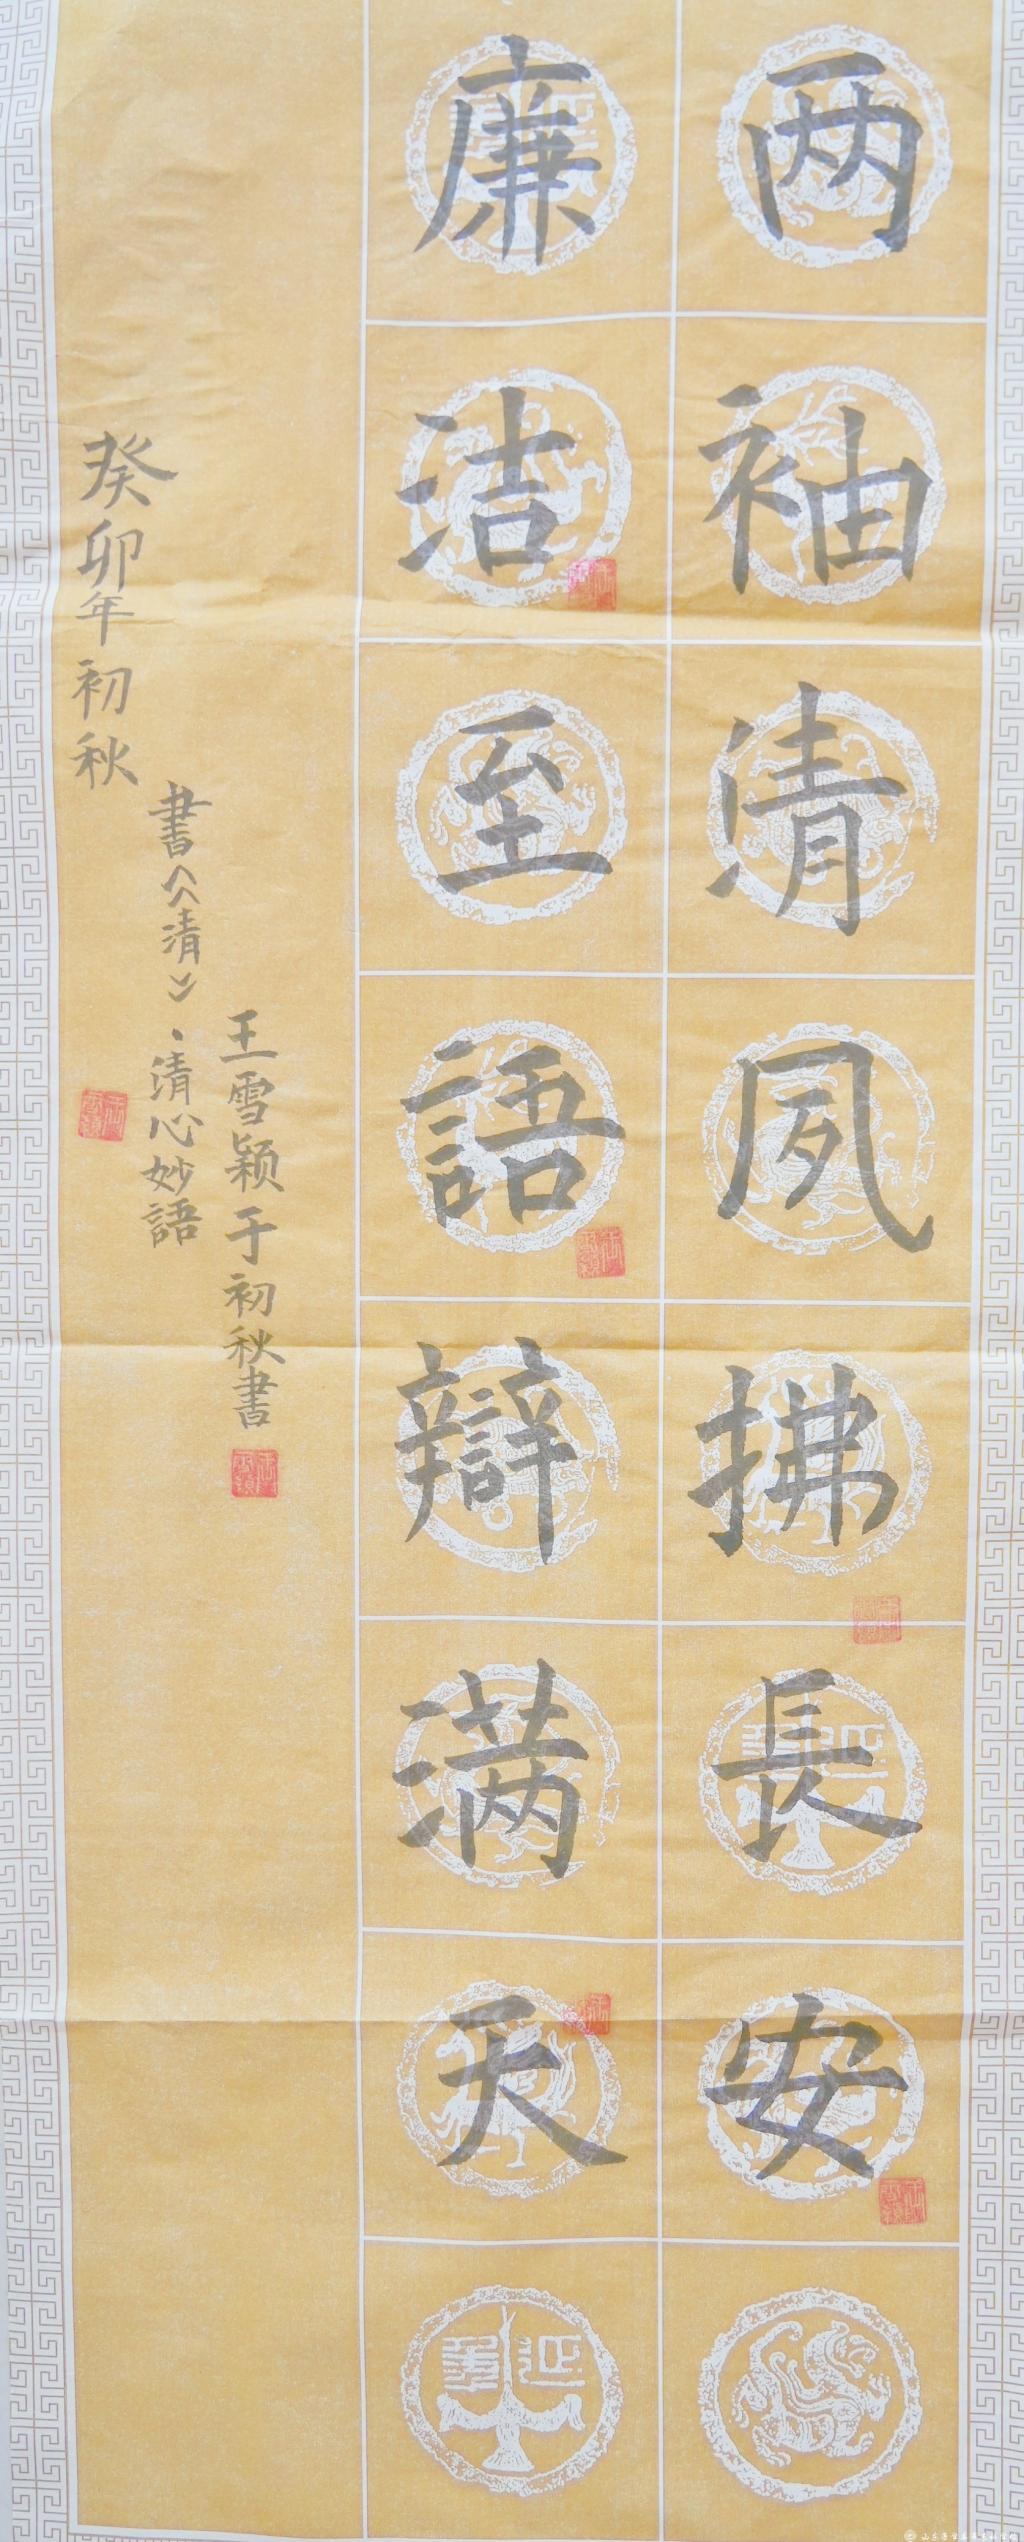 两袖清夙拂長安
廉洁至語辯满天
王雪颖于初秋書
書《清》、清心妙語
癸卯年初秋